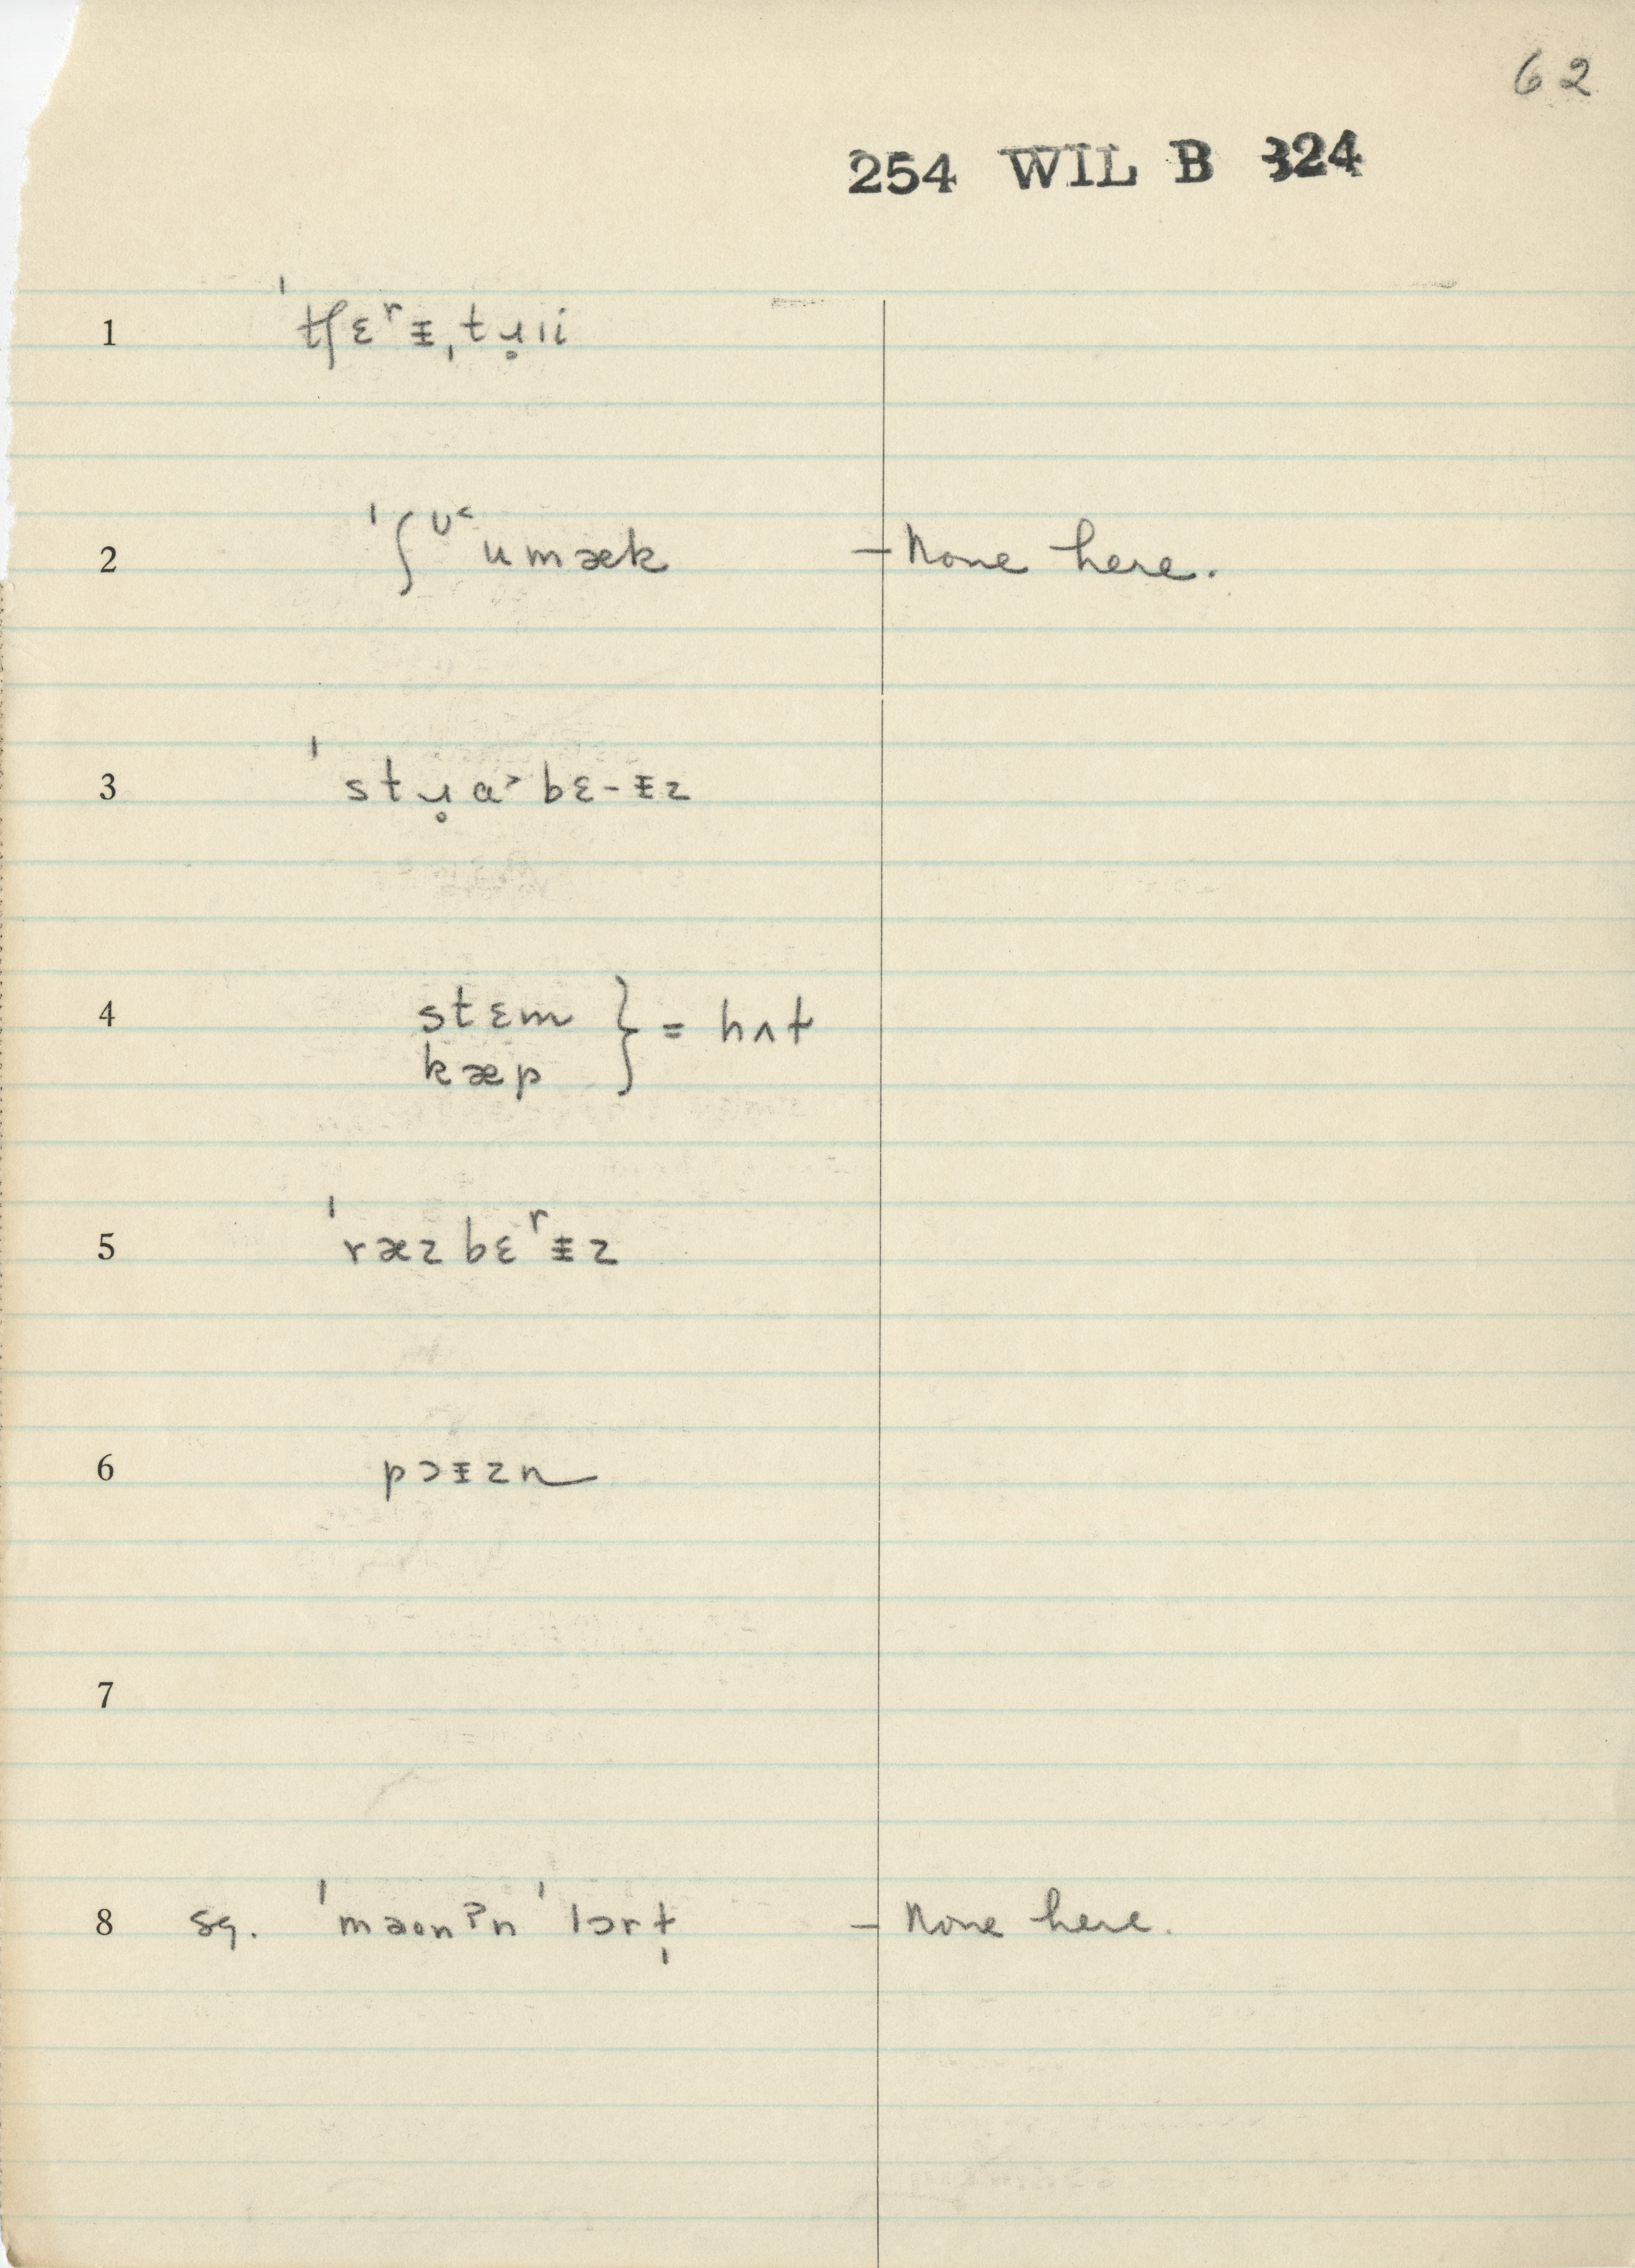 62
254 WIL B 324
1 ˈtʃɛʳɪ̵ˌtɹ̥ii
2 ˈʃᶷ˂umæk – None here.
3 ˈstɹ̥a˃bɛ-ɪ̵z
4 stɛm } = hʌt
kæp
5 ˈræzbɛʳɪ̵z
6 pɔɪ̵zn
7
8 sg. ˈmaʊnˀn ˈlɔrɫ̩ – None here.